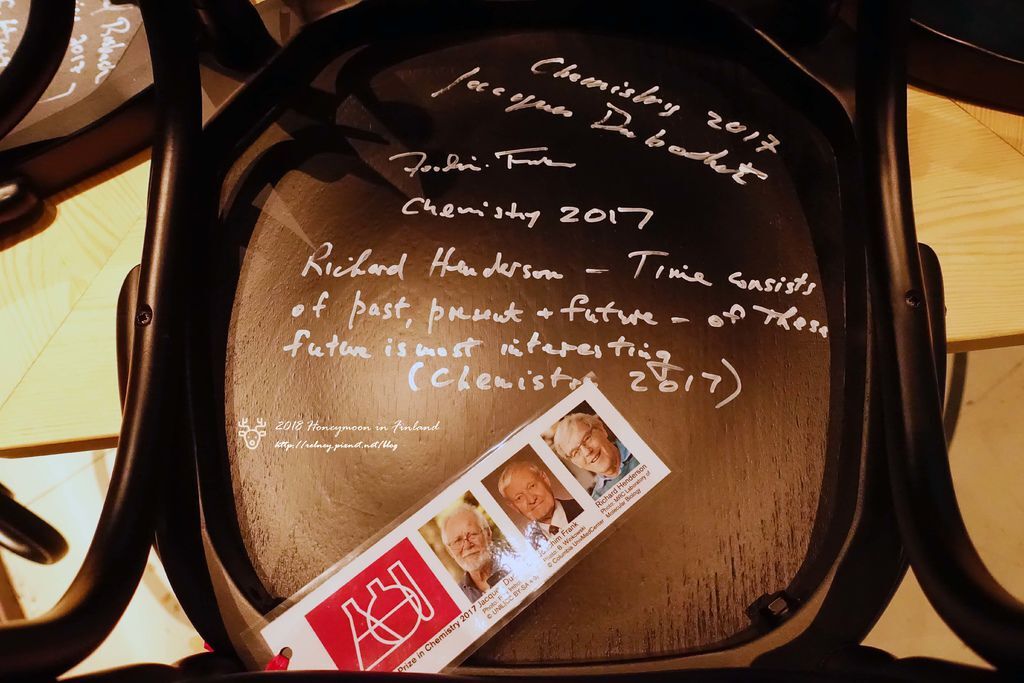 2017
Chemistry 2017
Jacques Dubochet
Chemistry 2017
Richard Henderson – Time consists
of past, present + future – of these
future is most interesting
(Chemistry 2017)
2018 Honeymoon in Finland
http://relney.pixnet.net/blog
Prize in Chemistry 2017
Jacques Du
© UNIL/CC BY-SA 4.0
him Frank
© Columbia UnivMedCenter
Richard Henderson
Photo: MRC Laboratory of
Molecular Biology